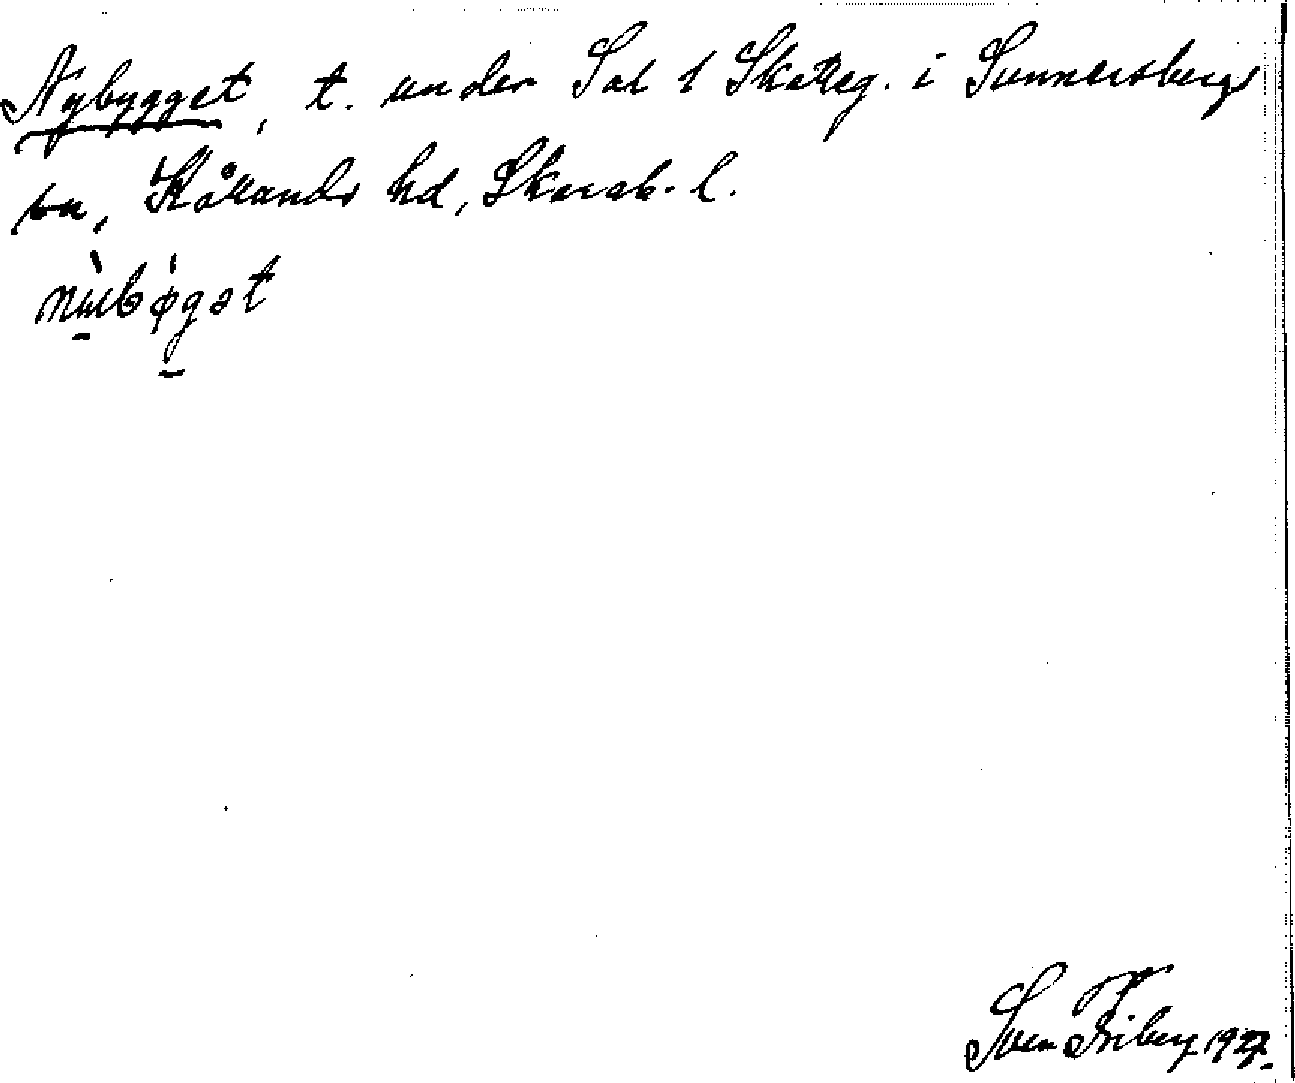 Nybygget, t. under Sal 1 Skatteg. i Sunnersbergs
sn, Kållands hd, Skarab. l.
nubøgət
Sven Friberg 1927.